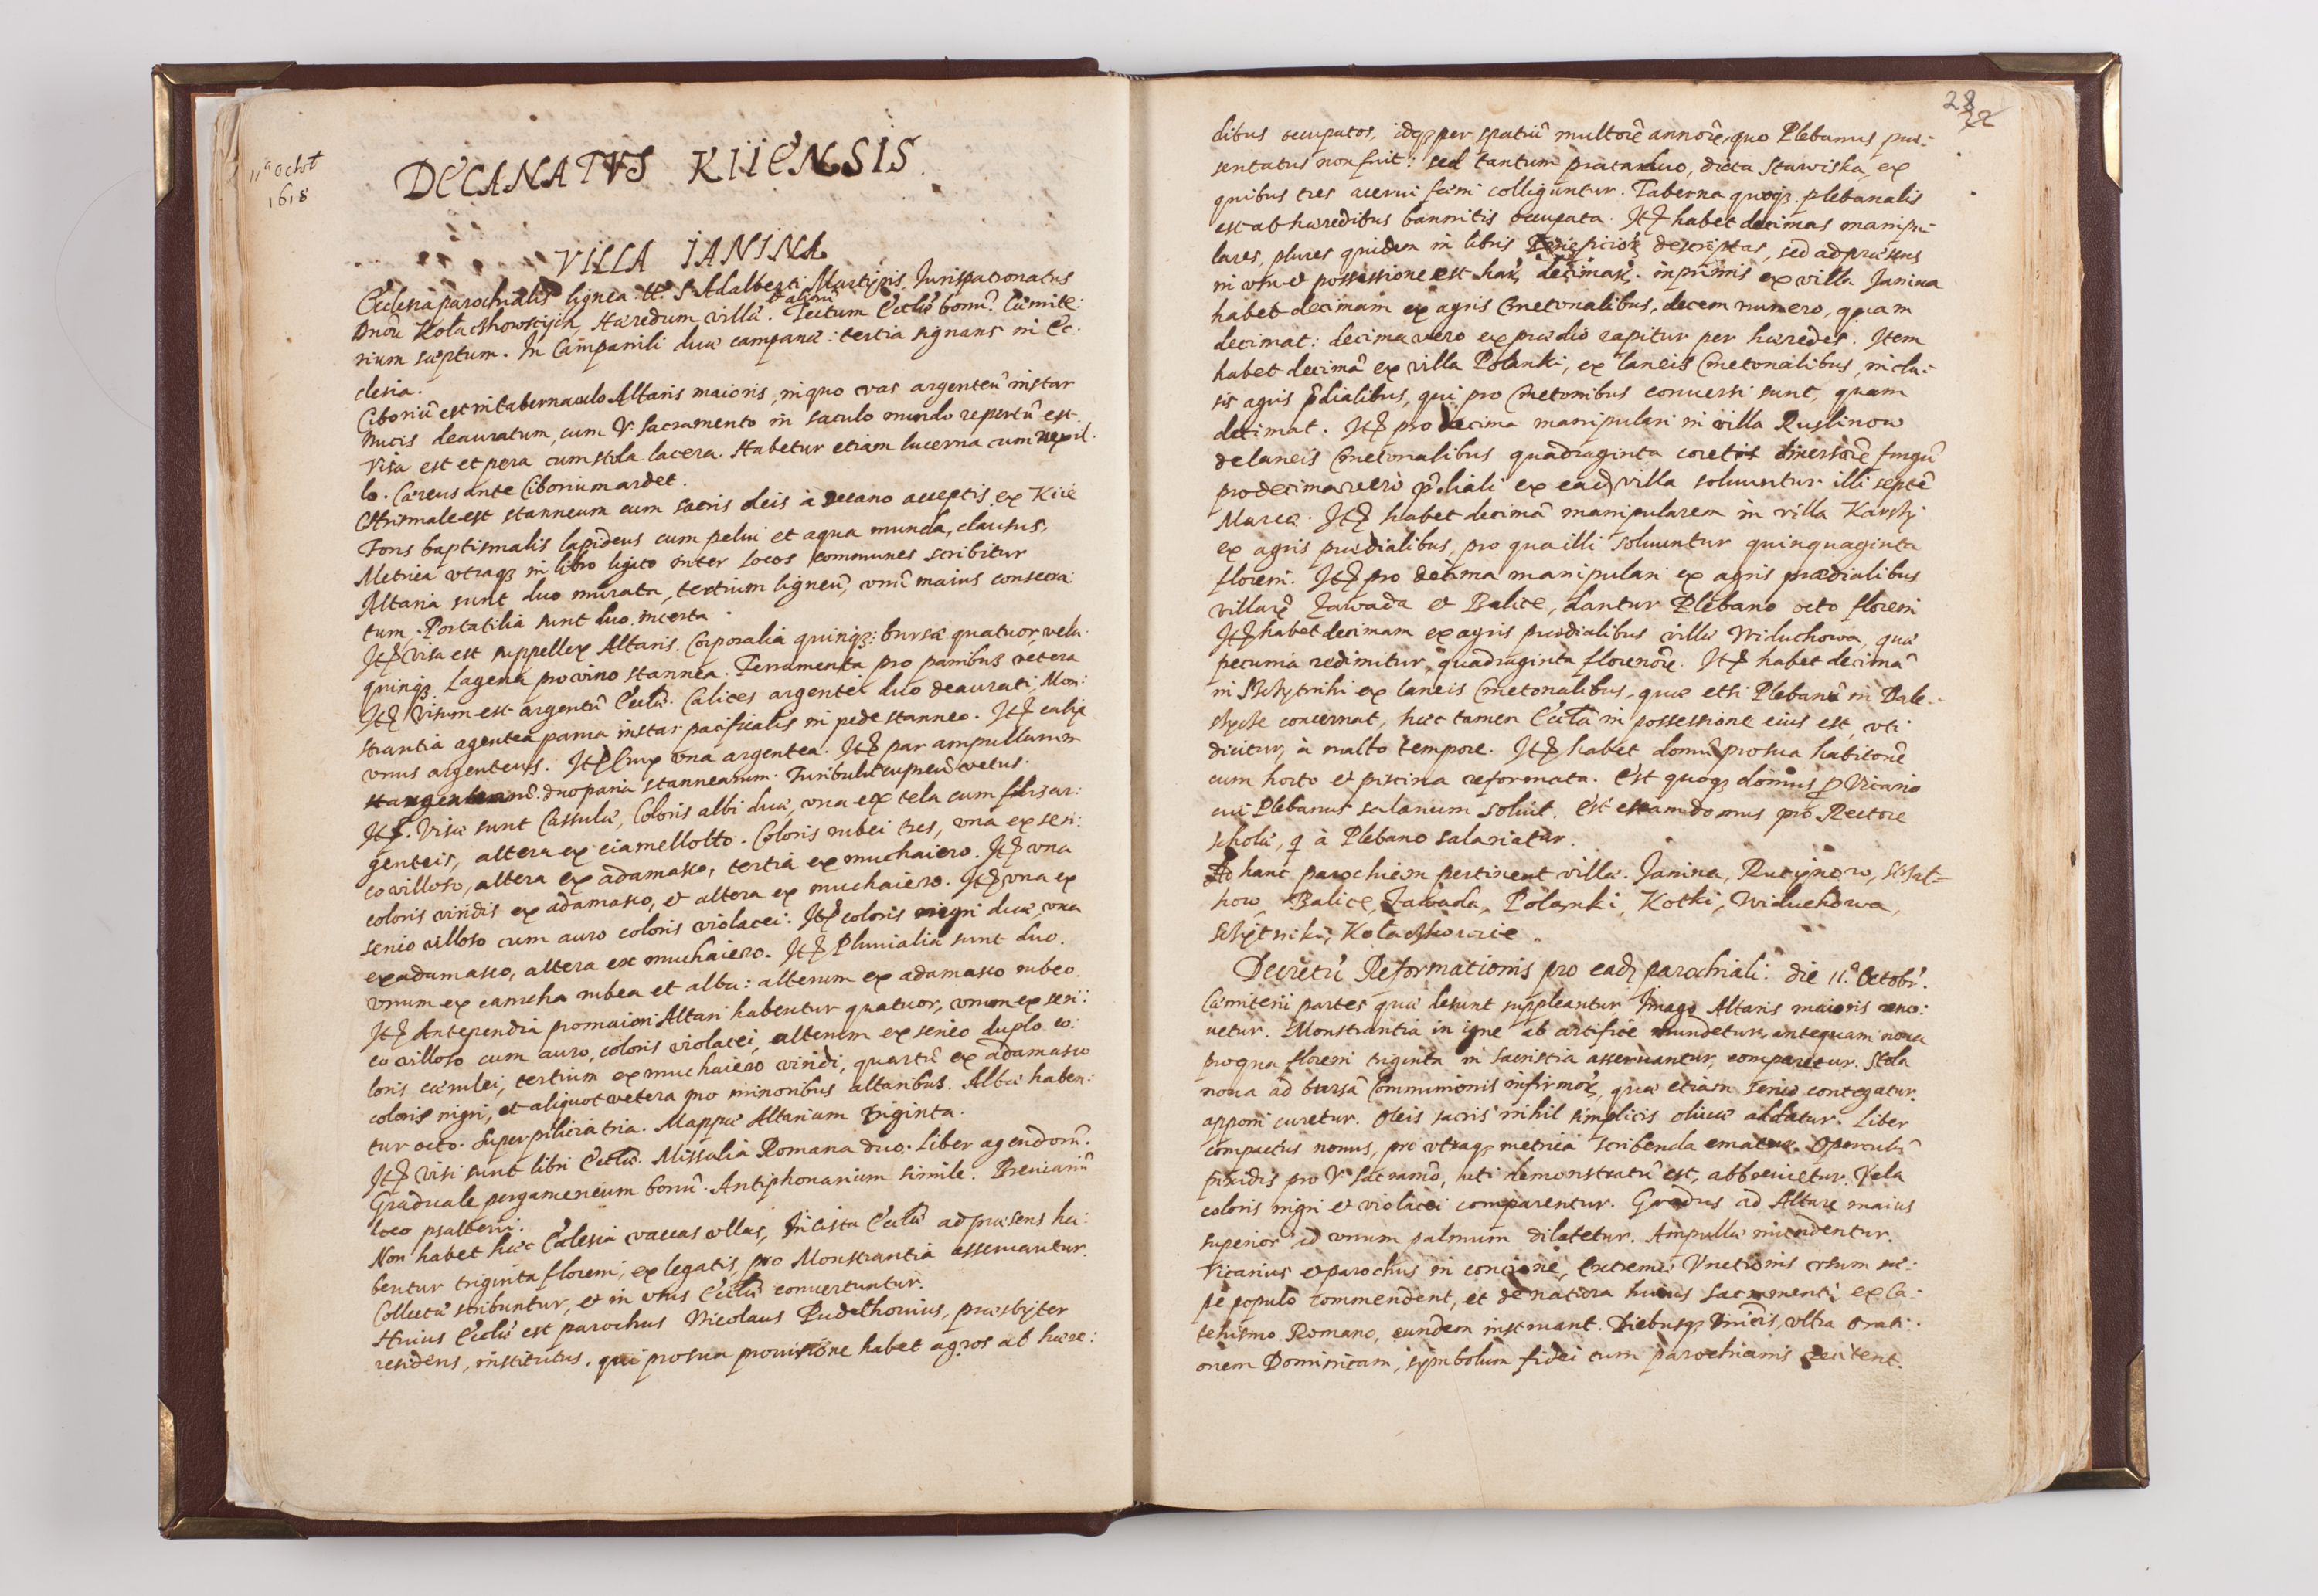 11ª Octobr
1618
DECANATVS KIIENSIS.
VILLA IANINA
Ecclesia parochialis lignea tt. S Adalberti Martyris. Jurispatronatus
& alior̃
Dnor̃u Kołaczkowscijch, Hæredum villæ. Tectum Eccłæ bonũ. Cæmite:
rium sæptum. In Campanili duæ campanæ: tertia signans in Ec:
clesia.
Ciboriũ est in tabernaculo Altaris maioris, in quo vas argenteũ instar
nucis deauratum, cum V. Sacramento in sacculo mundo repertũ est
Visa est et pera cum stola lacera. Habetur etiam lucerna cum vexil:
lo. Cereus ante Ciborium ardet.
Chrismale est stanneum cum sacris oleis à Decano acceptis ex Kiie
Fons baptismalis lapideus cum pelui et aqua munda, clausus.
Metrica vtraqȝ in libro ligato inter locos communes scribitur
Altaria sunt duo murata, tertium ligneũ, vnũ maius consecra:
tum. Portatilia sunt duo incerta.
Itẽ visa est suppellex Altaris. Corporalia quinqȝ: bursæ quatuor, vela
quinqȝ. Lagena pro vino stannea. Ferramenta pro panibus vetera
Itẽ visum est argentũ Eccłæ. Calices argentei duo deaurati, Mon:
strantia agentea parua instar pacificalis in pede stanneo. Itẽ calix
vnus argenteus. Itẽ Crux vna argentea. Itẽ par ampullarum
duo paria stannearum. Turibulũ cupreũ vetus.
Itẽ. Visæ sunt Cassulæ, Coloris albi duæ, vna ex tela cum filis ar:
genteis, altera ex ciamellotto. Coloris rubei tres, vna ex seri:
co villoso, altera ex adamasco, tertia ex muchaiero. Itẽ vna
coloris viridis ex adamasco, et altera ex muchaiero. Itẽ vna ex
serico villoso cum auro coloris violacei: Itẽ coloris nigri duæ, vna
ex adamasco, altera ex muchaiero. Itẽ Pluuialia sunt duo.
vnum ex camcha rubea et alba: alterum ex adamasco rubeo.
Itẽ Antependia pro maiori Altari habentur quatuor, vnum ex seri:
co villoso cum auro, coloris violacei, alterum ex serico duplo co:
loris cærulei, tertium ex muchaiero viridi, quartũ ex adamasco
coloris nigri, et aliquot vetera pro minoribus altaribus. Albæ haben:
tur octo. Superpilicia tria. Mappæ Altarium triginta.
Itẽ visi sunt libri Eccłæ. Missalia Romana duo. Liber agendorũ.
Graduale pergameneum bonũ. Antiphonarium simile. Breuiariũ
loco psalterii.
Non habet hæc Ecclesia vaccas vllas, In cista Eccłæ ad præsens ha:
bentur triginta floreni, ex legatis, pro Monstrantia asseruantur.
Collectæ scribuntur, et in vsus Eccłæ conuertuntur.
Huius Eccłæ est parochus Nicolaus Pudelhouius, præsbyter
residens, institutus, qui pro sua prouisione habet agros ab hære:
28
dibus occupatos, idqȝ per spatiũ multorũ annorũ, quo Plebanus præ:
sentatus non fuit: sed tantum prata duo, dicta Stawiska, ex
quibus tres acerui fæni colliguntur. Taberna quoqȝ plebanalis
est ab hæredibus bannitis occupata. Itẽ habet decimas manipu:
lares, plures quidem in libris descriptas, sed ad præsens
in vsu et possessione est harũ decimarũ. inprimis ex villa Janina
habet decimam ex agris Cmetonalibus, decem numero, quam
decimat: decima vero ex prædio rapitur per hæredes. Item
habet decimã ex villa Polanki, ex laneis Cmetonalibus, inclu:
sis agris p̃dialibus, qui pro Cmetonibus conuersi sunt, quam
decimat. Itẽ pro decima manipulari in villa Ruslinow
de laneis Cmetonalibus quadraginta coretis diuersorũ frugũ
pro decima vero p̃diali ex eadȝ villa soluuntur illi septẽ
Marcæ. Itẽ habet decimã manipularem in villa Karsły
ex agris prædialibus, pro qua illi soluuntur quinquaginta
floreni. Itẽ pro decima manipulari ex agris prædialibus
villarũ Zawada et Balice, dantur Plebano octo floreni
Itẽ habet decimam ex agris prædialibus villæ Widuchowa, quæ
pecunia redimitur, quadraginta florenorũ. Itẽ habet decimã
in Sczytniki ex laneis Cmetonalibus, quæ etsi Plebanũ in Bale:
czycze concernat, hæc tamen Eccła in possessione eius est, vti
dicitur, à multo tempore. Itẽ habet domũ pro sua habitõne
cum horto et piscina reformata. Est quoqȝ domus p Vicario
cui Plebanus salarium soluit. Est etiam domus pro Rectore
scholæ, q à Plebano salariatur.
Ad hanc parochiam pertinent villæ. Janina, Rucijnow, Szał=
how, Balice, Zawada, Polanki, Kotki, Widuchowa,
Sczytniki, Kołaczkowice.
Decretũ Reformationis pro eadȝ parochiali. die 11ª Octobr.
Cæmiterii partes quæ desunt suppleantur Imago Altaris maioris reno:
uetur. Monstrantia in igne ab artifice mundetur, antequam noua
pro qua floreni triginta in Sacristia asseruantur, comparetur. Stola
noua ad bursã Communionis infirmorũ, quæ etiam serico contegatur.
apponi curetur. Oleis sacris nihil simplicis oliuæ addatur. Liber
compactus nouus, pro vtraqȝ metrica scribenda ematur. Operculũ
pixidis pro V. Sacramõ, uti demonstratũ est, abbreuietur. Vela
coloris nigri et violacei comparentur. Gradus ad Altare maius
superior ad vnum palmum dilatetur. Ampullæ mundentur.
Vicarius et parochus in concione, Extremæ Vnctionis vsum sæ:
pe populo commendent, et de natura huius Sacramenti ex Ca:
techismo Romano, eundem instruant. Diebusqȝ Dnicis, vltra Orati:
onem Dominicam, symbolum fidei cum parochianis recitent.